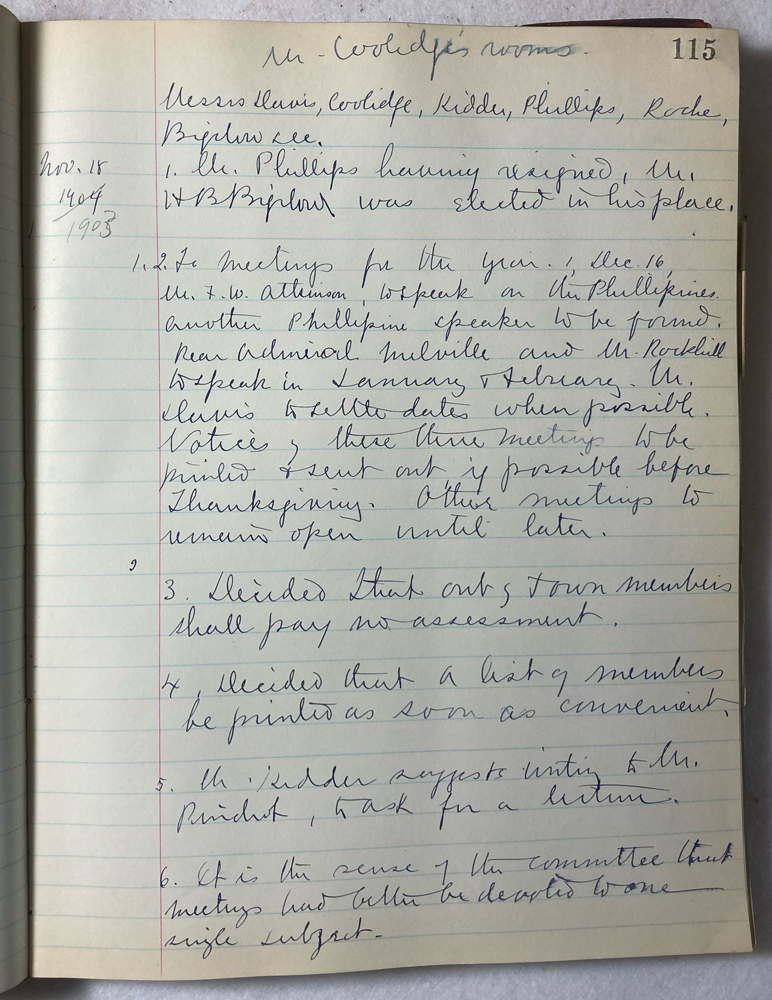 Mr. Coolidge's rooms.
115
Messrs Davis, Coolidge, Kidder, Phillips, Roche,
Bigelow
Nov. 18
1904
1903
1. Mr. Phillips having resigned, Mr.
H B Bigelow was elected in his place.
1. 2. To meetings for the year. 1, Dec. 16,
Mr. F. W. Atkinson, to speak on the Phillipines.
another Phillipine speaker to be found.
Rear Admiral Melville and Mr. Rockhill
to speak in January & February. Mr.
Davis to settle dates when possible.
Notices of these three meetings to be
printed & sent out if possible before
Thanksgiving. Other meetings to
remain open until later.
3. Decided that out of town members
shall pay no assessment.
4. Decided that a list of members
be printed as soon as convenient.
5. Mr. Kidder suggests writing to Mr.
Pinchot, to ask for a lecture.
6. It is the sense of the committee that
meetings had better be devoted to one
single subject.